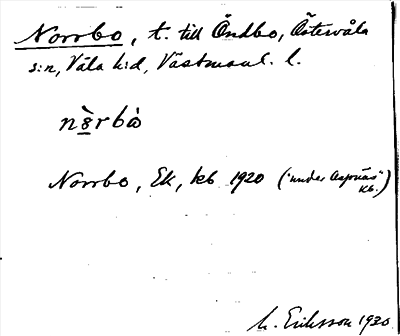 Norrbo, t. till Öndbo, Östervåla
s:n, Våla h:d, Västmanl. l.
nòrbò
Norrbo, Ek, kb 1920 ("under Aspnäs"
kb.)
M. Eriksson 1930